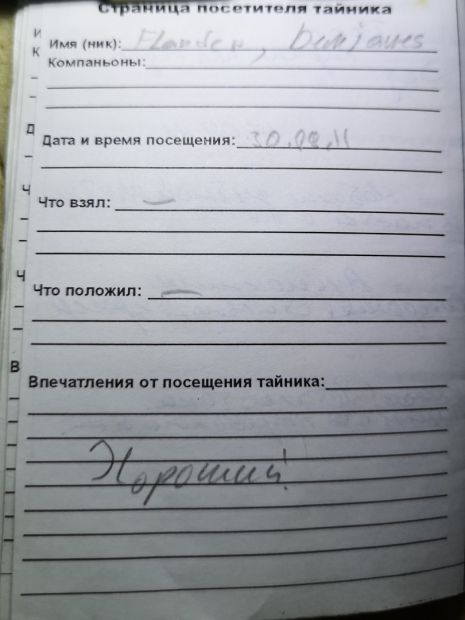 Страница посетителя тайника
Имя (ник):
Компаньоны:
Дата и время посещения: 30.09.11
Что взял: —
Что положил: —
Впечатления от посещения тайника:
Хороший